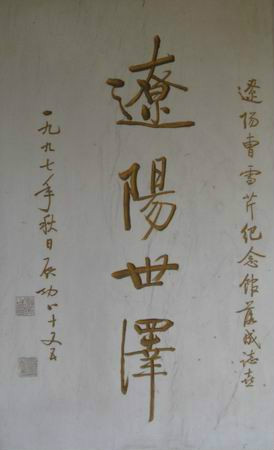 遼陽曹雪芹纪念館落成誌喜
遼陽世澤
一九九七年秋日启功八十又五